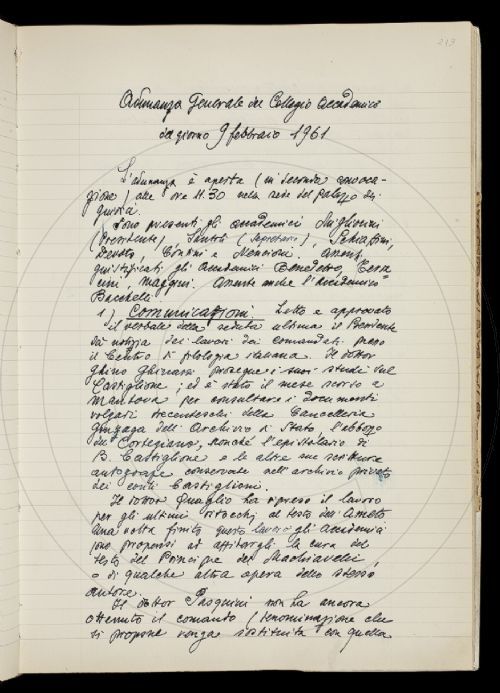 219
Adunanza Generale del Collegio accademico
del giorno 9 febbraio 1961
L'adunanza è aperta (in seconda convoca-
zione) alle ore 11.30 nella sede del palazzo dei
giudici.
Sono presenti gli accademici Migliorini
(Presidente), (Segretario), Schiaffini,
Devoto, Contini e Nencioni. Assenti
giustificati gli Accademici Benedetto, Terra
cini, Maggini. Assente anche l'Accademico
Bacchelli.
1) Comunicazioni. Letto e approvato
il verbale della seduta ultima il Presidente
dà notizia dei lavori dei comandati presso
il Centro di filologia italiana. Il dottor
Ghino Ghinassi prosegue i suoi studi sul
Castiglione; ed è stato il mese scorso a
Mantova per consultare i documenti
volgari trecenteschi della Cancelleria
Gonzaga dell'Archivio di Stato l'abbozzo
del Cortegiano, nonché l'epistolario di
B. Castiglione e le altre sue scritture
autografe conservate nell'archivio privato
dei conti Castiglioni.
Il dottor Quaglio ha ripreso il lavoro
per gli ultimi ritocchi al testo dell'Ameto
Una volta finito questo lavoro gli Accademici
sono propensi ad affidargli la cura del
testo del Principe del Machiavelli,
o di qualche altra opera dello stesso
autore.
Il dottor Pasquini non ha ancora
ottenuto il comando (denominazione che
si propone venga sostituita con quella